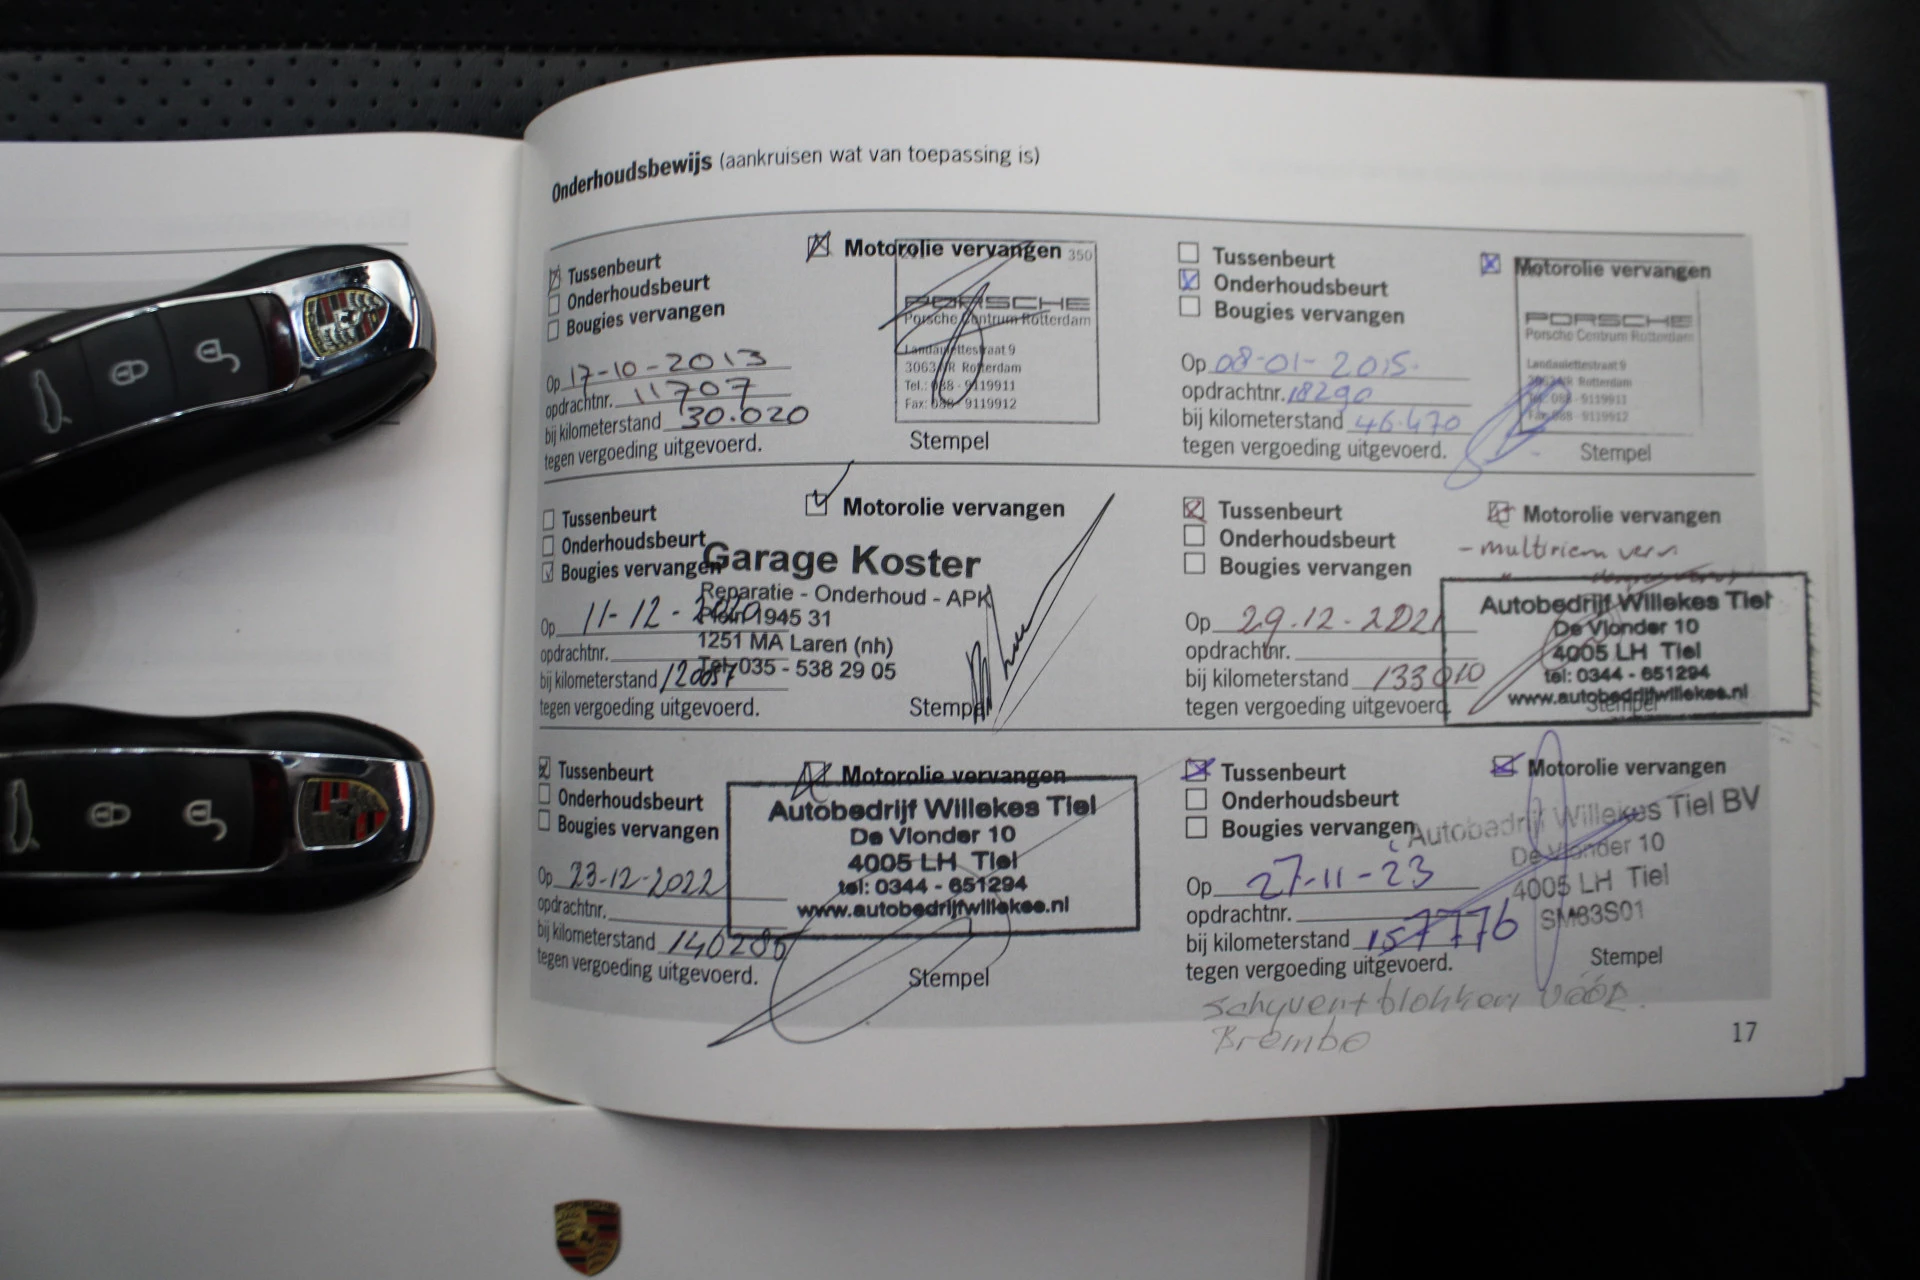 Onderhoudsbewijs (aankruisen wat van toepassing is)
Tussenbeurt
Onderhoudsbeurt
Bougies vervangen
Motorolie vervangen
350
PORSCHE
Porsche Centrum Rotterdam
Landaulettestraat 9
3063 NR Rotterdam
Tel.: 088 - 9119911
Fax: 088 - 9119912
Op 17-10-2013
opdrachtnr. 11707
bij kilometerstand 30.020
tegen vergoeding uitgevoerd.
Stempel
Tussenbeurt
Onderhoudsbeurt
Bougies vervangen
Motorolie vervangen
PORSCHE
Porsche Centrum Rotterdam
Landaulettestraat 9
Rotterdam
088 - 9119911
088 - 9119912
Op 08-01-2015.
opdrachtnr. 18290
bij kilometerstand 46.470
tegen vergoeding uitgevoerd.
Stempel
Tussenbeurt
Onderhoudsbeurt
Bougies vervangen
Motorolie vervangen
Garage Koster
Reparatie - Onderhoud - APK
Plein 1945 31
1251 MA Laren (nh)
Tel. 035 - 538 29 05
Op 11-12-2020
opdrachtnr.
bij kilometerstand
tegen vergoeding uitgevoerd.
Stempel
Tussenbeurt
Onderhoudsbeurt
Bougies vervangen
Motorolie vervangen
- multiriem verv
Autobedrijf Willekes Tiel
De Vlonder 10
4005 LH Tiel
tel: 0344 - 651294
www.autobedrijfwillekes.nl
Op 29.12.2021
opdrachtnr.
bij kilometerstand 133010
tegen vergoeding uitgevoerd.
Stempel
Tussenbeurt
Onderhoudsbeurt
Bougies vervangen
Motorolie vervangen
Autobedrijf Willekes Tiel
De Vlonder 10
4005 LH Tiel
tel: 0344 - 651294
www.autobedrijfwillekes.nl
Op 23-12-2022
opdrachtnr.
bij kilometerstand 140285
tegen vergoeding uitgevoerd.
Stempel
Tussenbeurt
Onderhoudsbeurt
Bougies vervangen
Motorolie vervangen
Autobedrijf Willekes Tiel BV
De Vlonder 10
4005 LH Tiel
SM63S01
Op 27-11-23
opdrachtnr.
bij kilometerstand 157776
tegen vergoeding uitgevoerd.
Stempel
Schyven + blokken vóór.
Brembo
17
PORSCHE